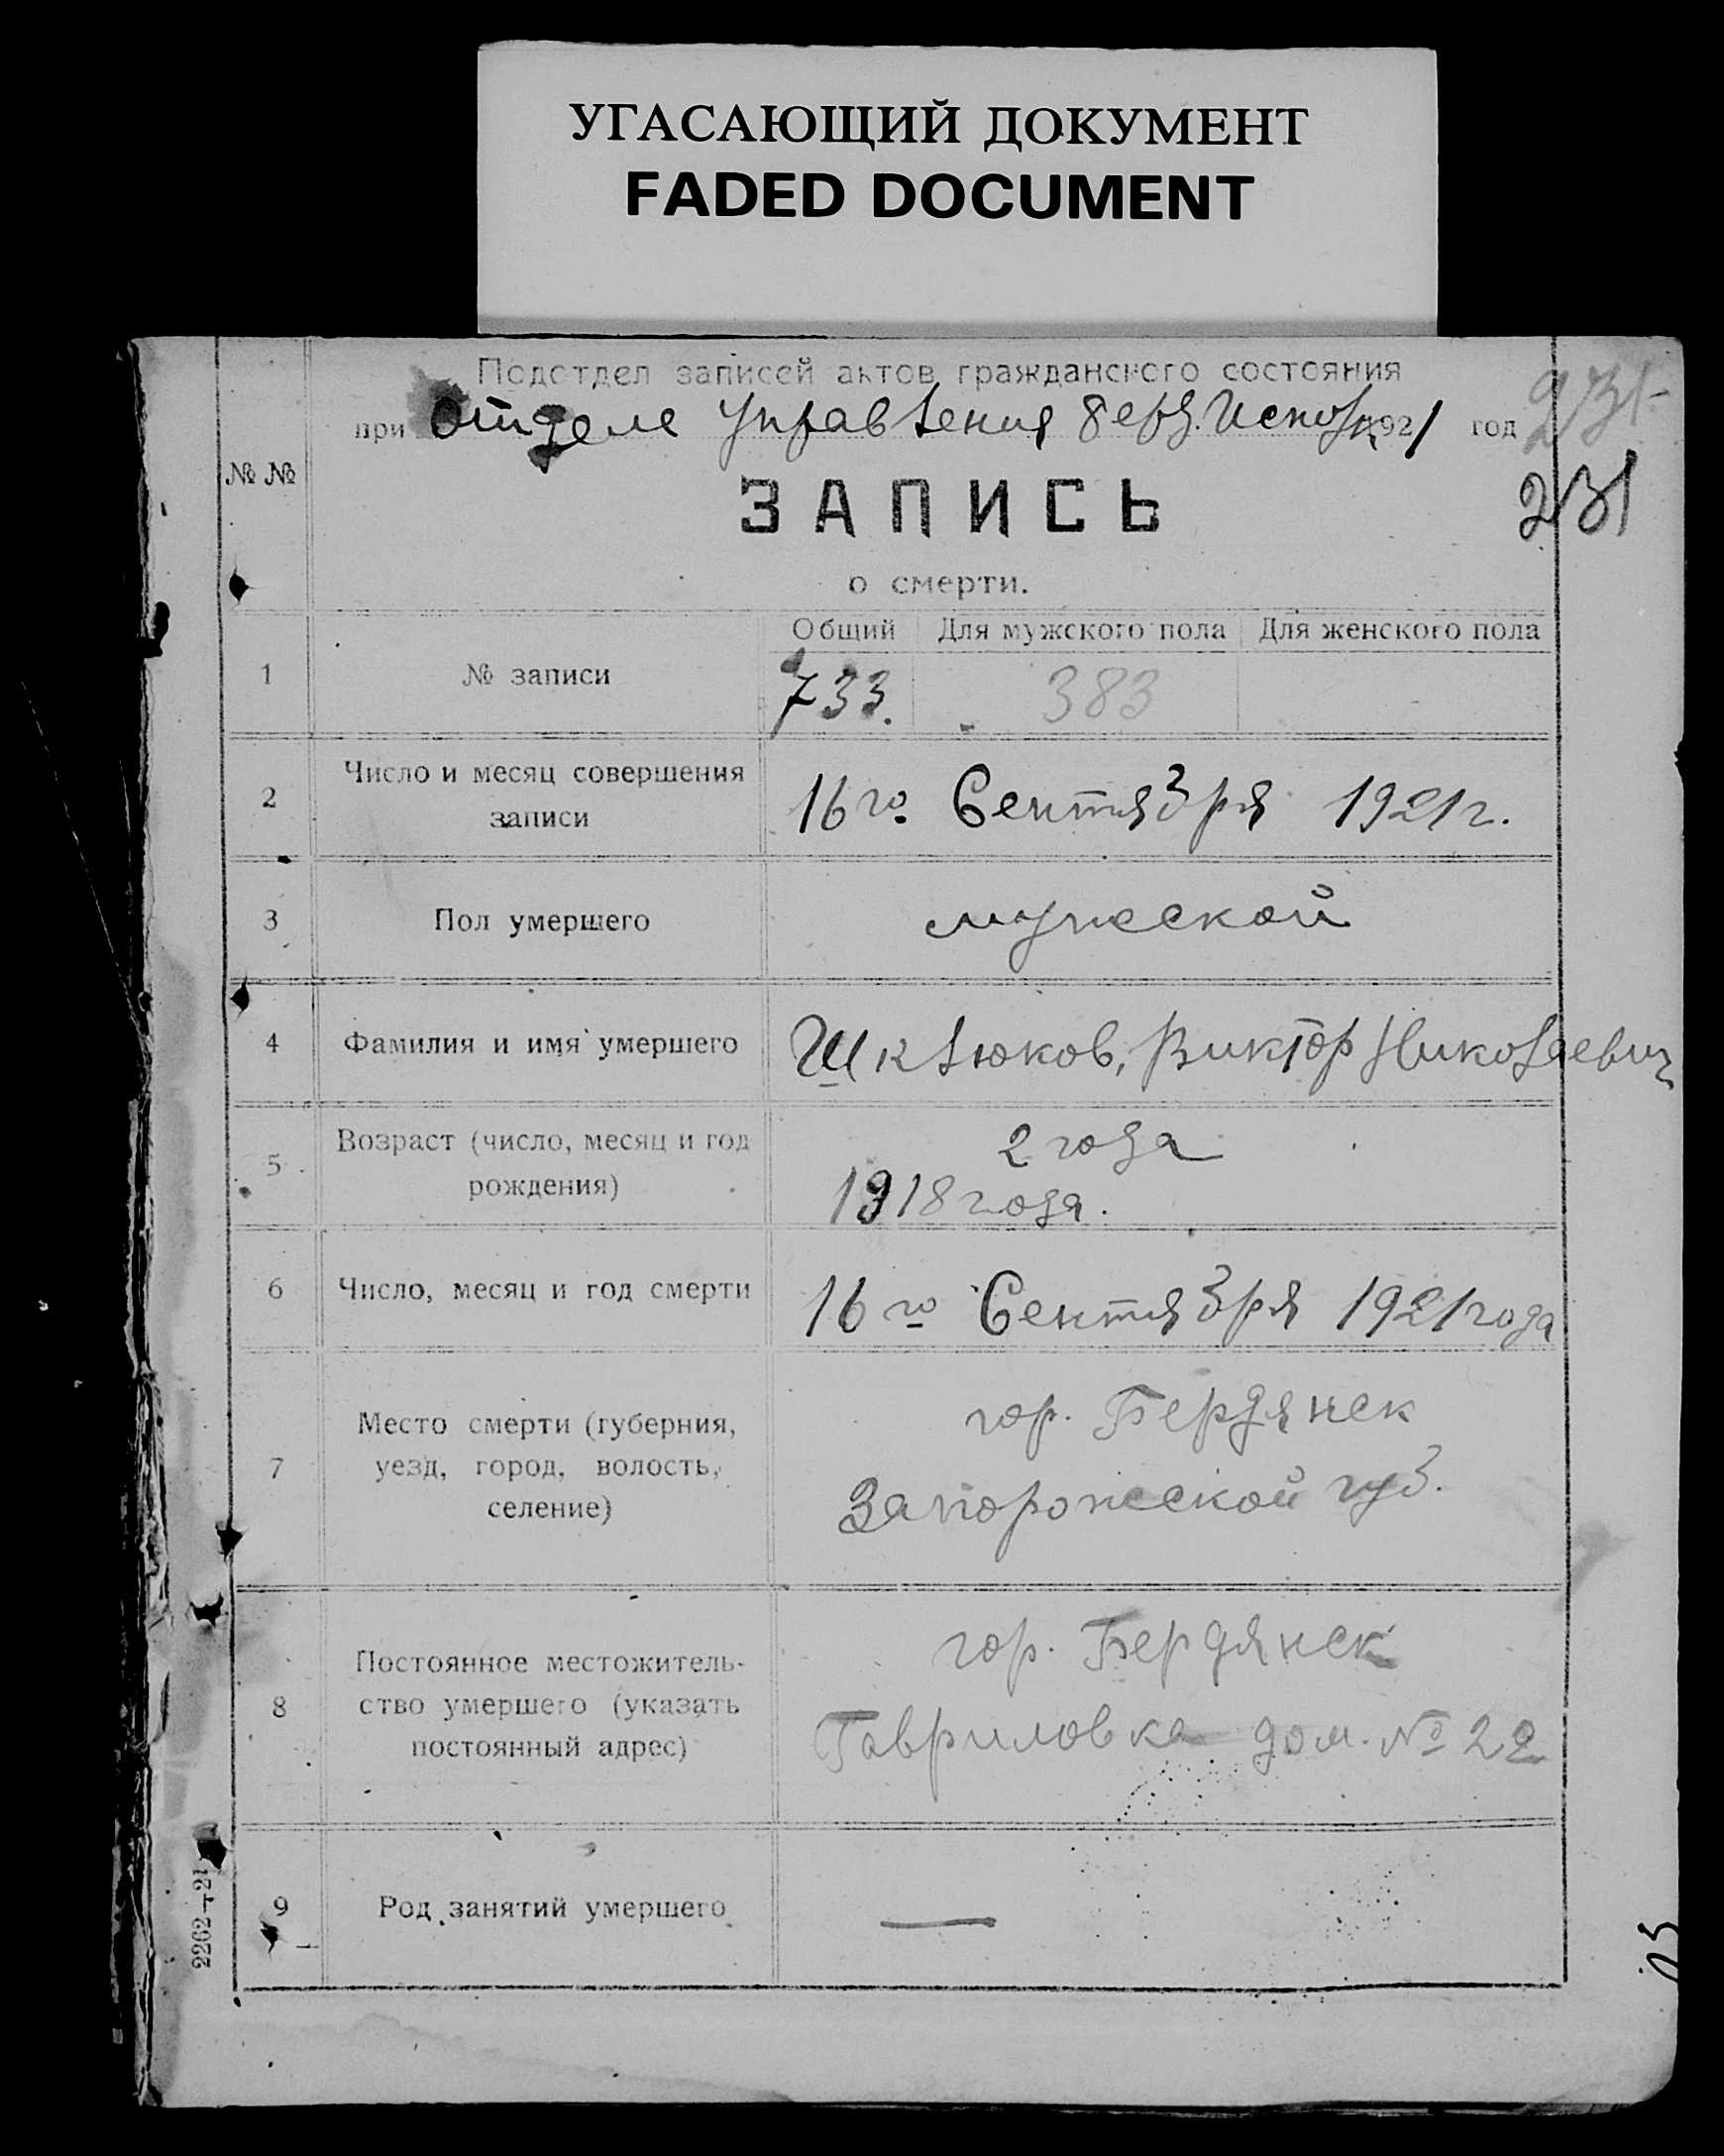 УГАСАЮЩИЙ ДОКУМЕНТ
FADED DOCUMENT
Подотдел записей актов гражданского состояния
при Отделе Управления Берд. Исполк 1921 год
231
№ №
ЗАПИСЬ
231
о смерти.
Общий Для мужского пола Для женского пола
1 № записи 733. 383
2 Число и месяц совершения
записи
16го Сентября 1921г.
3 Пол умершего мужеской
4 Фамилия и имя умершего Шклюков, Виктор Николаевич
5 Возраст (число, месяц и год
рождения)
2 года
1918 года.
6 Число, месяц и год смерти 16го Сентября 1921 года
7 Место смерти (губерния,
уезд, город, волость,
селение)
гор. Бердянск
Запорожеской губ.
8 Постоянное местожитель-
ство умершего (указать
постоянный адрес)
гор. Бердянск
Гавриловка дом. № 22
9 Род занятий умершего —
2262—21